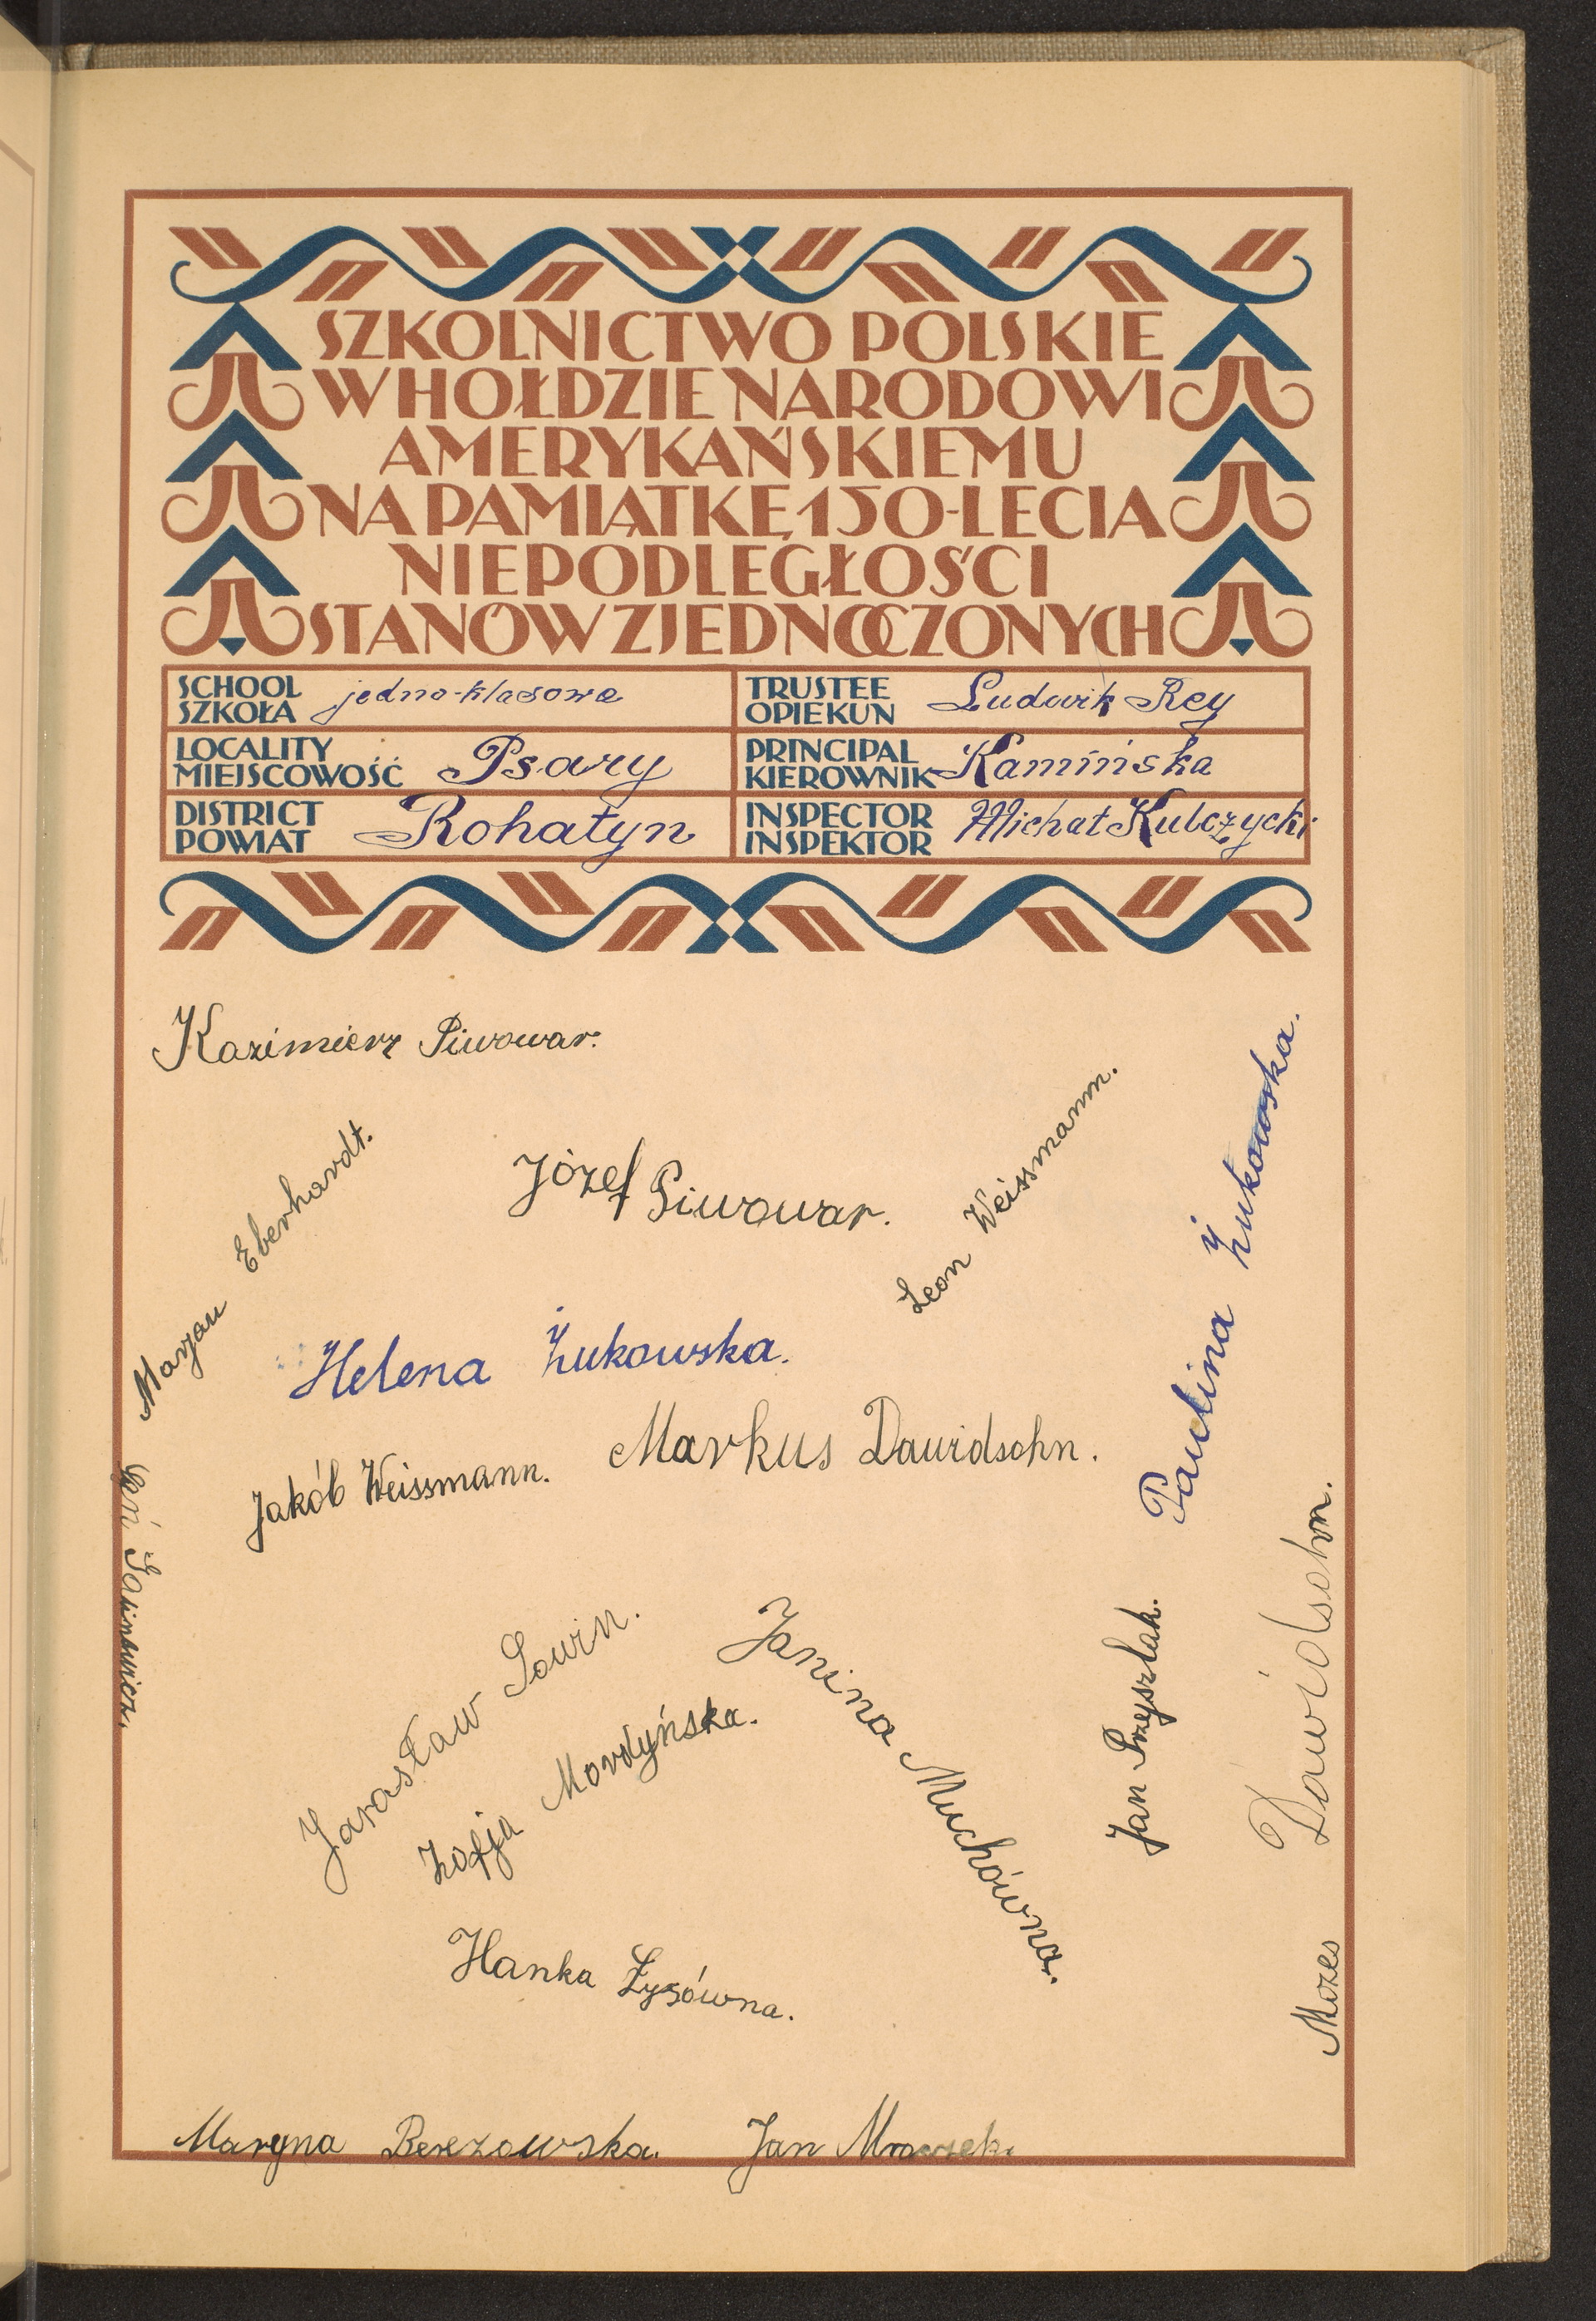 SZKOLNICTWO POLSKIE
W HOŁDZIE NARODOWI
AMERYKAŃSKIEMU
NA PAMIĄTKĘ 150-LECIA
NIEPODLEGŁOŚCI
STANÓW ZJEDNOCZONYCH
SCHOOL
SZKOŁA
jedno-klasowa
TRUSTEE
OPIEKUN
Ludwik Rey
LOCALITY
MIEJSCOWOŚĆ
Psary
PRINCIPAL
KIEROWNIK
Kamińska
DISTRICT
POWIAT
Rohatyn
INSPECTOR
INSPEKTOR
Michał Kulczycki
Kazimierz Piwowar.
Maryan Eberhardt.
Józef Piwowar.
Leon Weissmann.
Paulina Żukowska.
Helena Żukowska.
Markus Dawidsohn.
Jakób Weissmann.
Jarosław Sowin.
Zofja Mordyńska.
Janina Muchówna.
Jan Przyszlak.
Mozes Dawidsohn.
Hanka Łysówna.
Maryna Berezowska.
Jan Mroczek.